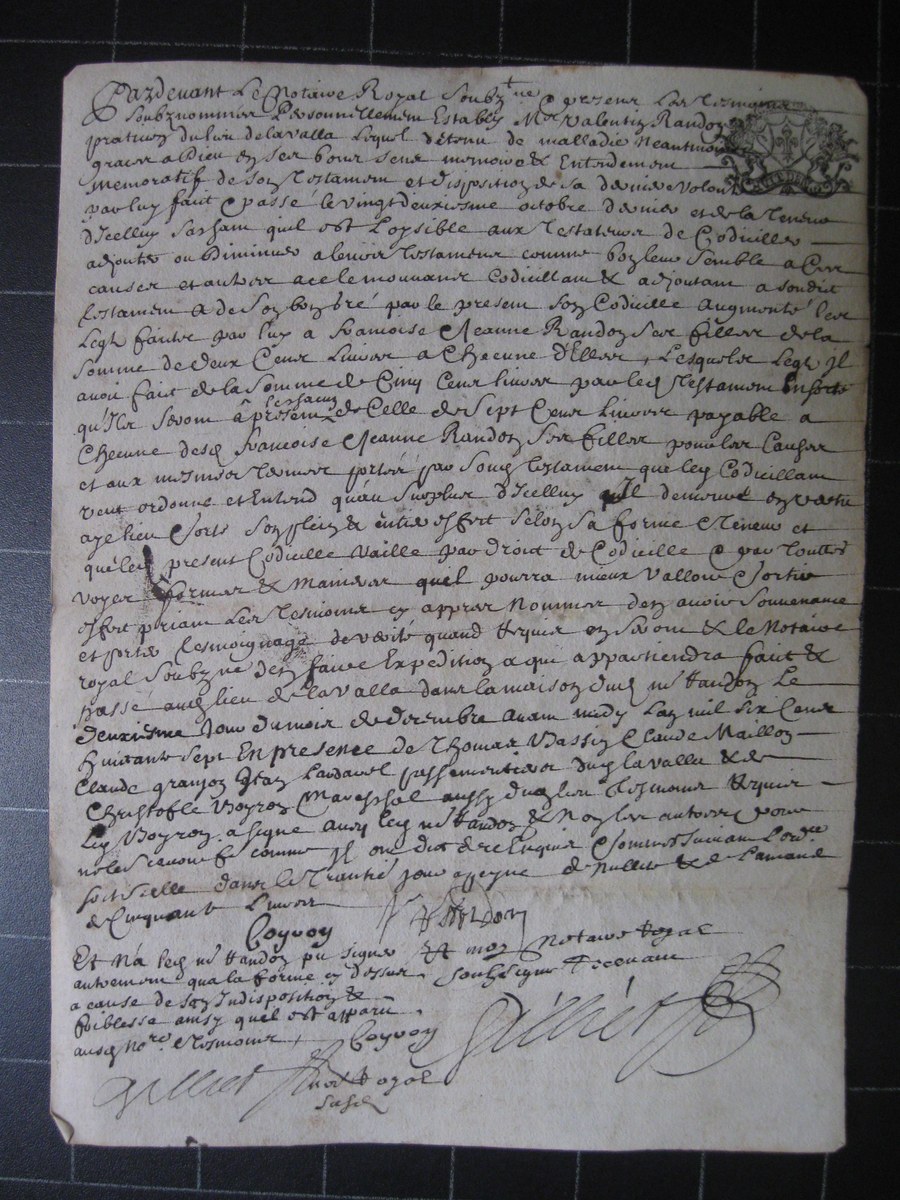 Pardevant Le Notaire Royal Soubz.ne & presens Les tesmoins
Soubznommés Personnellement Estably Mre Valentin Randon
praticien du lieu de lavalla Lequel detenu de malladie Neantmoins
graces a Dieu en ses bons sens memoire & Entendement
memoratif de son Testament et disposition de sa derniere volonté
par luy fait & passé le vingt deuxiesme octobre dernier et de la Teneur
d'Icelluy Sachant quil est Loysible aux Testateurs de Codiciller
adjouter ou Diminuer a leurs Testamens comme bon leur Semble a Ces
causes et autres a ce le mouvans Codicillant & adjoutant a sondit
testament A de son bon gré par le present son Codicille augmenté les
Legs faits par luy a francoise & Jeanne Randon Ses filles de la
Somme de deux Cens Livres a Checune d'Elles, Lesquels Legs Il
avoit fait de la Somme de Cinq Cens livres par led Testament En sorte
qu'Ils Seront a present lesd legs de Celle de Sept Cens Livres payable a
Checune desd francoise & Jeanne Randon Ses filles pour les Causes
et aux mesmes termes portés par Sond Testament que led Codicillant
veut ordonne et Entend qu'au Surplus d'Icelluy Il demeure
aye lieu & sorte son plein & entier effect selon sa forme & teneur et
quele present Codicille vaille par droit de Codicille & par touttes
voyes formes & manieres quil pourra mieux valloir & sortir
effect priant Les tesmoins cy appres nommés den avoir Souvenance
et porter tesmoignage de verité quand requis en seront & le Notaire
royal Soubz.né den faire Expedition a qui appartiendra fait &
passé aud lieu de lavalla dans la maison dud mre Randon Le
deuxiesme Jour du mois de decembre avant midy Lan mil Six Cens
huittante Sept En presence de Thomas Bassin Claude Maillon
Claude granjon Jean passementiers dud lavalla & de
Christofle Boyron Mareschal aussy dud lieu tesmoins requis
Led Boyron a signé avec led mre Randon & Non les autres pour
ne le scavoir fe comme Ils ont dit de ce Enquis & Sommes Suivant Lord.ce
soit scellé dans le peyne de Nullité & de Lamande
de Cinquante Livres
Boyron Randon
Et N'a led mre Randon pu signer
autrement qua la forme cy dessus
a cause de son Indisposition &
foiblesse ainsy quel est apparu
ausd No.re & tesmoins,
Et moy Notaire Royal
Soubsigne Recevant
Boyron
Gilliet
Gilliet
not Royal